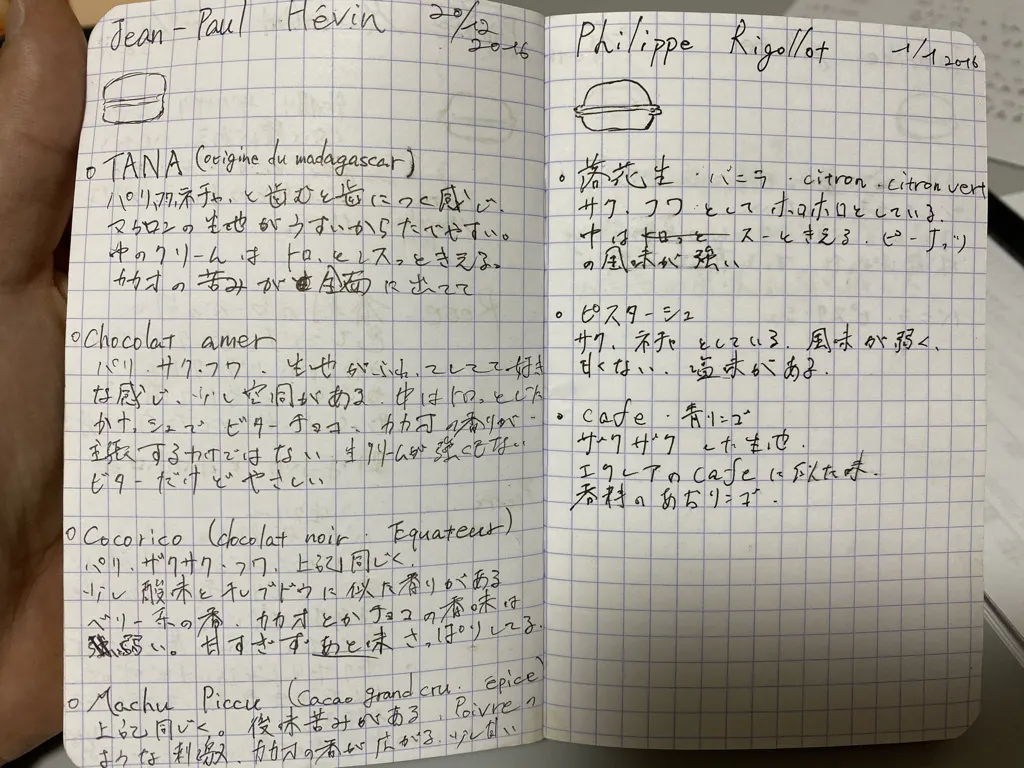 Jean-Paul Hévin 20/12 2016
TANA (origine du madagascar)
パリ,フワ,ネチャ,と歯むと歯につく感じ、
マカロンの生地がうすいからたべやすい。
中のクリームはトロッとしスッときえる。
カカオの苦みが全面に出てて
Chocolat amer
パリ、サク、フワ、生地が
な感じ、少し空洞がある、中はトロッとした
ガナッシュで ビターチョコ、カカオの香りが
主張するわけではない、生クリームが強くもない
ビターだけどやさしい
Cocorico (chocolat noir. Equateur)
パリ、ザクサク、フワ、上記同じく、
少し酸味と干しブドウに似た香りがある
ベリー系の香、カカオとかチョコの香味は
弱い。甘すぎず あと味さっぱりしてる。
Machu Piccu (Cacao grand cru. épice)
上記同じく。後味苦みがある、Poivreの
ような刺激、カカオの香が広がる、少し甘い
Philippe Rigollot 1/1 2016
落花生・バニラ・citron・citron vert
サク、フワ、として ホロホロとしている。
中は トロッと スーときえる、ピーナッツ
の風味が強い
ピスターシュ
サク、ネチャとしている、風味が弱く、
甘くない、塩味がある。
cafe・青りんご
ザクザクした生地、
エクレアのcafeに似た味、
香料の